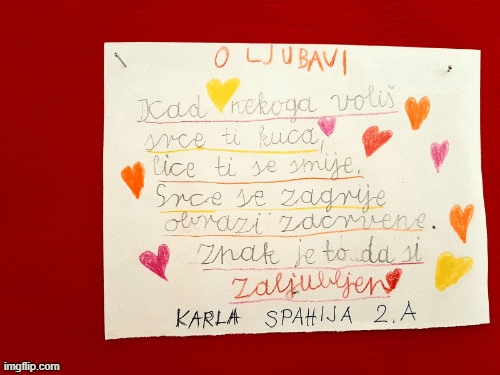 O LJUBAVI
Kad nekoga voliš
srce ti kuca,
lice ti se smije.
Srce se zagrije
obrazi zacrvene.
Znak je to da si
zaljubljen
KARLA SPAHIJA 2.A
imgflip.com